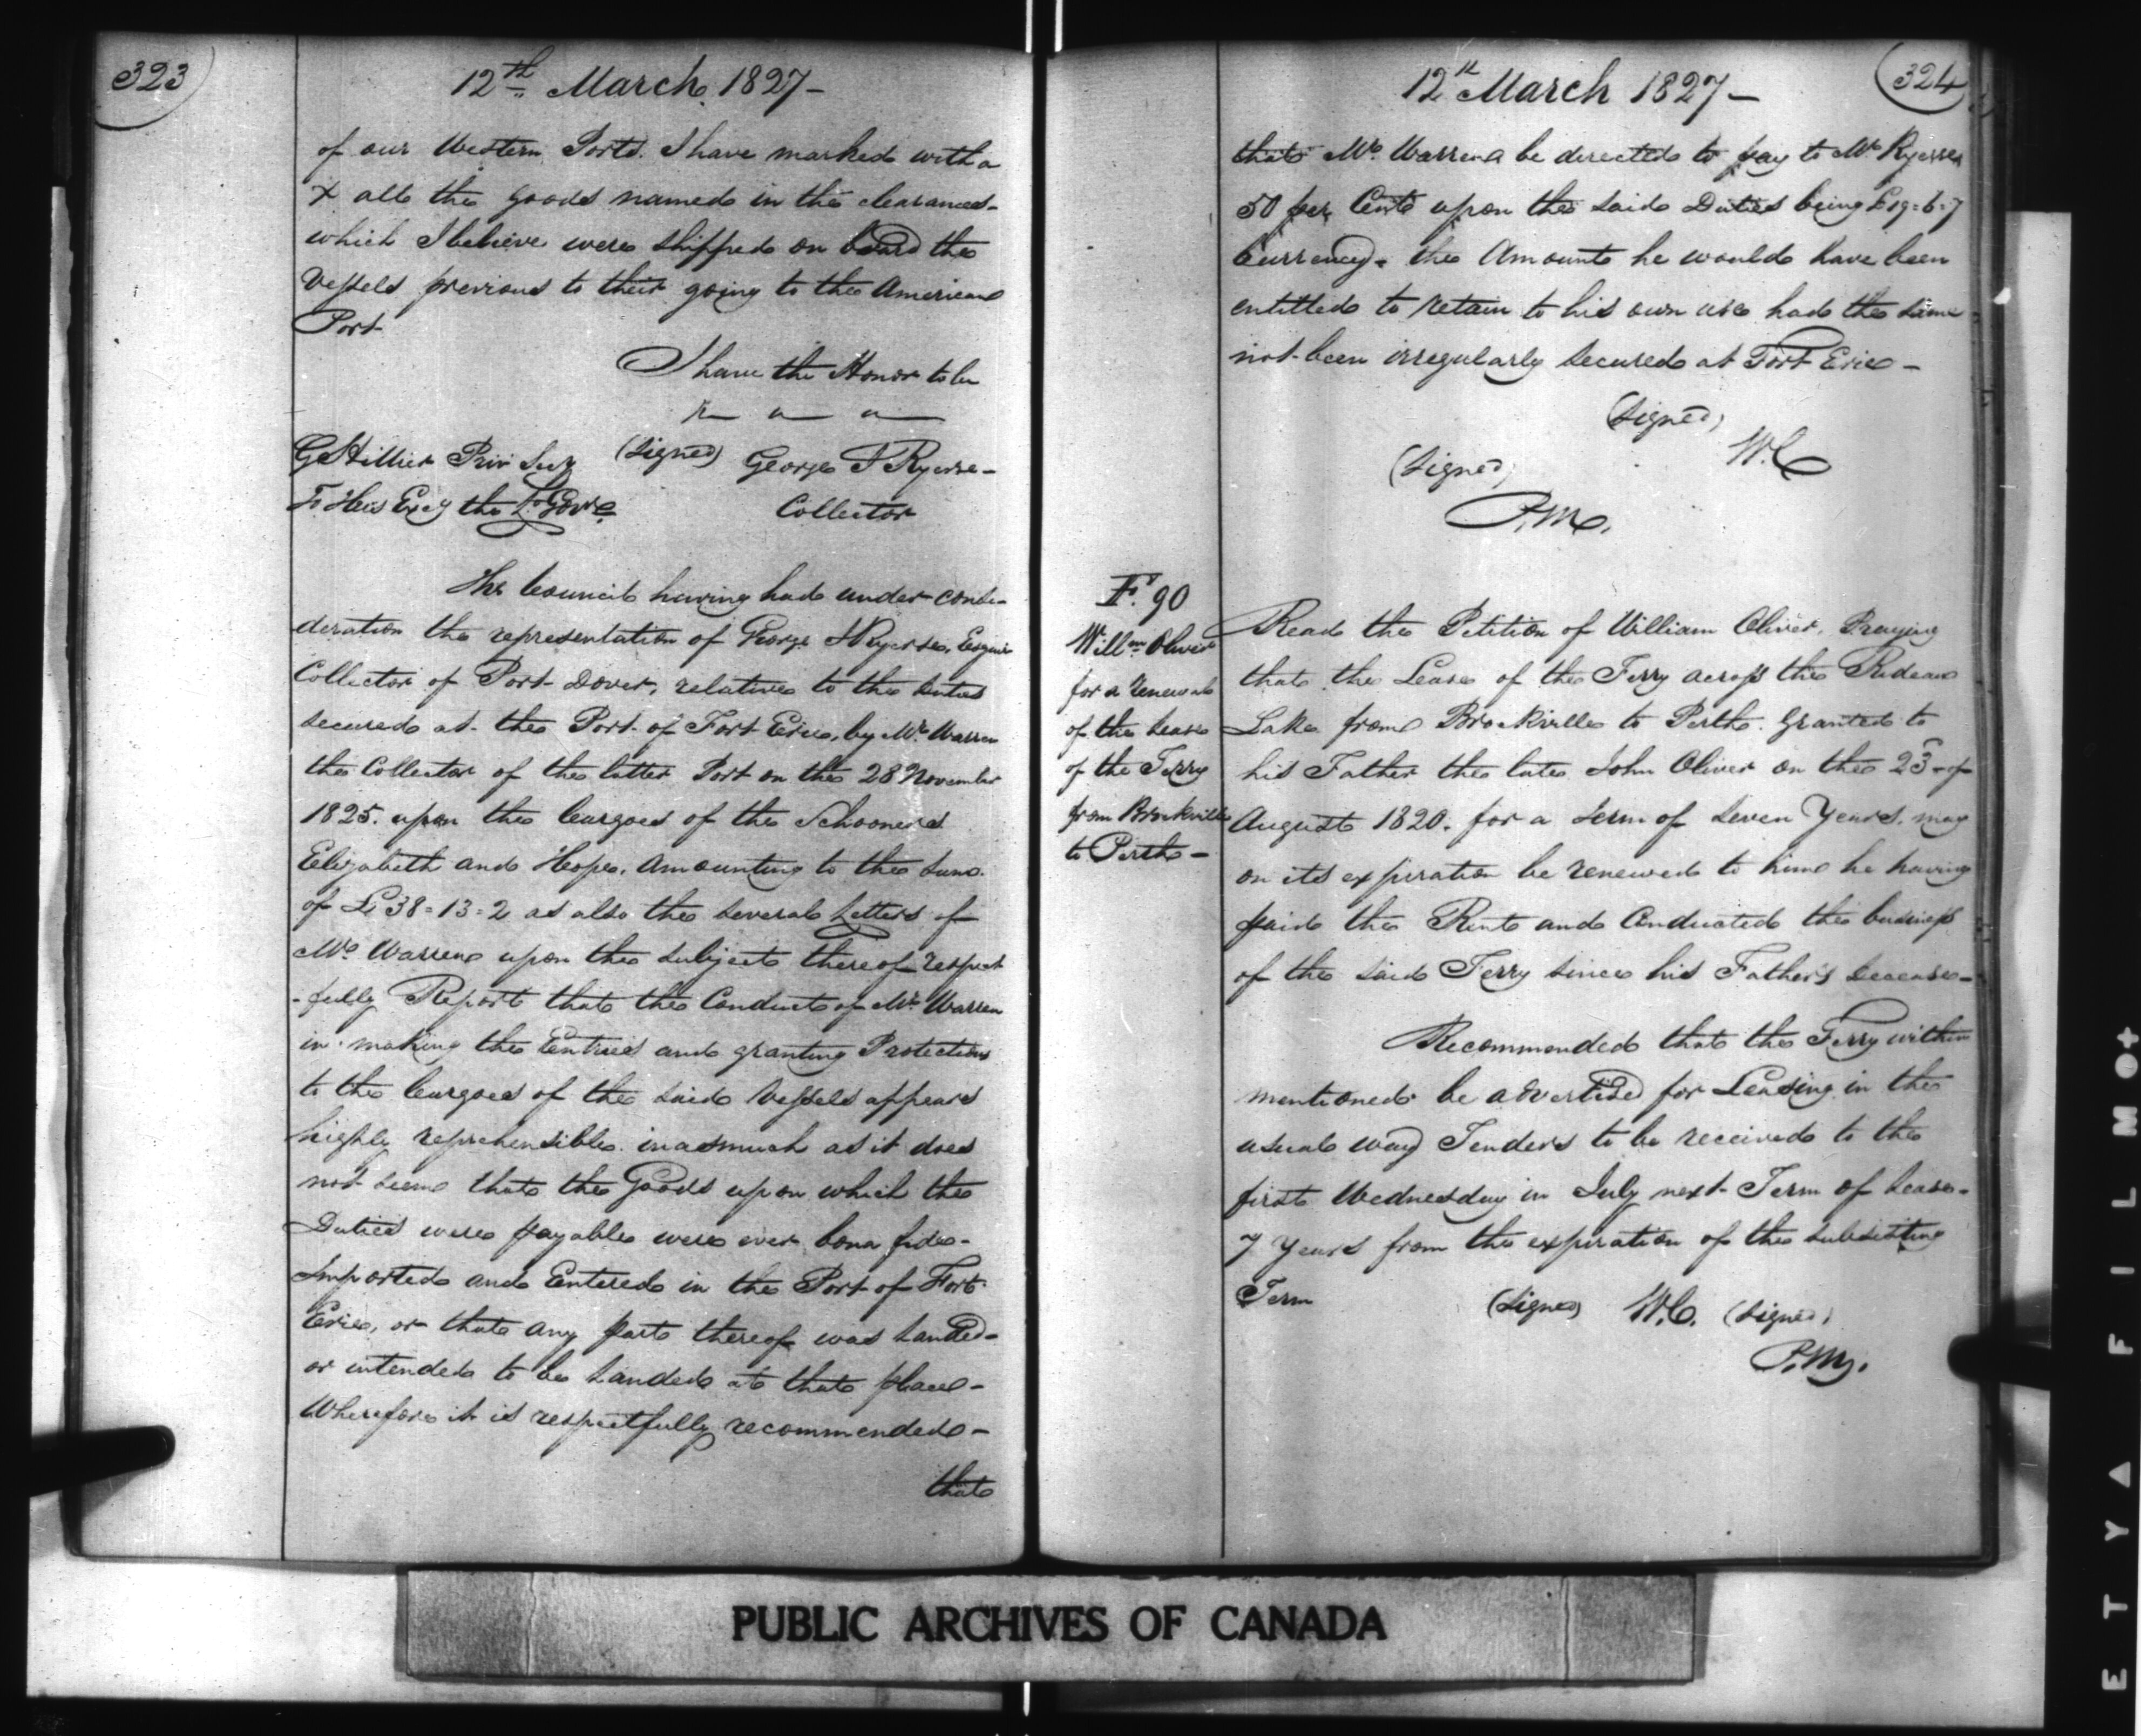 323
12th March 1827 –
of our Western Ports. I have marked with a
X all the goods named in the clearances –
which I believe were shipped on board the
Vessels previous to their going to the American
Port
I have the Honor to be
G Hillier Priv Secy (Signed) George J Ryerse –
To His Excy the Lt Govr Collector
The Council having had under consi-
deration the representation of George J Ryerse, Esquire
Collector of Port Dover, relative to the duties
secured at the Port of Fort Erie, by Mr Warren
the Collector of the latter Port on the 28 November
1825. upon the Cargoes of the Schooners
Elizabeth and Hope, amounting to the sum
of £38=13=2 as also the several Letters of
Mr Warren upon the subject thereof respect
-fully Report that the Conduct of Mr Warren
in making the Entries and granting Protections
to the Cargoes of the said Vessels appears
highly reprehensible inasmuch as it does
not seem that the Goods upon which the
Duties were payable were ever bona fide –
Imported and Entered in the Port of Fort
Erie, or that any part thereof was landed –
or intended to be landed at that place –
Wherefore it is respectfully recommended –
that
324
12th March 1827 –
that Mr Warren be directed to pay to Mr Ryerse
50 per Cent upon the said Duties being £19=6=7
Currency. the Amount he would have been
entitled to retain to his own use had the same
not been irregularly secured at Fort Erie –
(Signed)
W.C
(Signed)
P.M.
F. 90
Willm Oliver
for a renewal
of the lease
of the Ferry
from Brockville
to Perth –
Read the Petition of William Oliver, Praying
that the Lease of the Ferry across the Rideau
Lake from Brockville to Perth granted to
his Father the late John Oliver on the 23 of
August 1820. for a term of seven Years, may
on its expiration be renewed to him he having
paid the Rent and Conducted the business
of the said Ferry since his Father's decease –
Recommended that the Ferry within
mentioned be advertised for Leasing in the
usual way Tenders to be received to the
first Wednesday in July next Term of Lease –
7 Years from the expiration of the subsisting
Term (Signed) W.C. (Signed)
P.M.
PUBLIC ARCHIVES OF CANADA